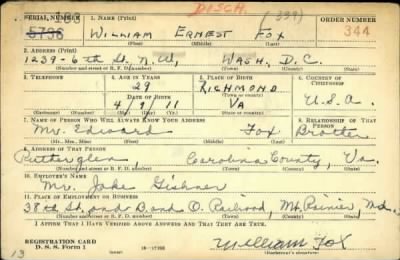 DISCH. (339)
SERIAL NUMBER 1. Name (Print) ORDER NUMBER
5736 William Ernest Fox 344
(First) (Middle) (Last)
2. Address (Print)
1239-6th St. N.W. Wash, D.C.
(Number and street or R. F. D. number) (Town) (County) (State)
3. Telephone 4. Age in Years 5. Place of Birth 6. Country of Citizenship
29 Richmond
Date of Birth (Town or county)
4/9/11 Va U.S.A.
(Exchange) (Number) (Mo.) (Day) (Yr.) (State or country)
7. Name of Person Who Will Always Know Your Address 8. Relationship of That Person
Mr. Edward Fox Brother
(Mr., Mrs., Miss) (First) (Middle) (Last)
9. Address of That Person
Rutherglen, Carolina County, Va.
(Number and street or R. F. D. number) (Town) (County) (State)
10. Employer's Name
Mr. Jake
11. Place of Employment or Business
38th St. and B. and O. Railroad, Mt. Rainier, Md.
(Number and street or R. F. D. number) (Town) (County) (State)
I Affirm That I Have Verified Above Answers and That They Are True.
REGISTRATION CARD
D. S. S. Form 1 16-17105 William Fox
13